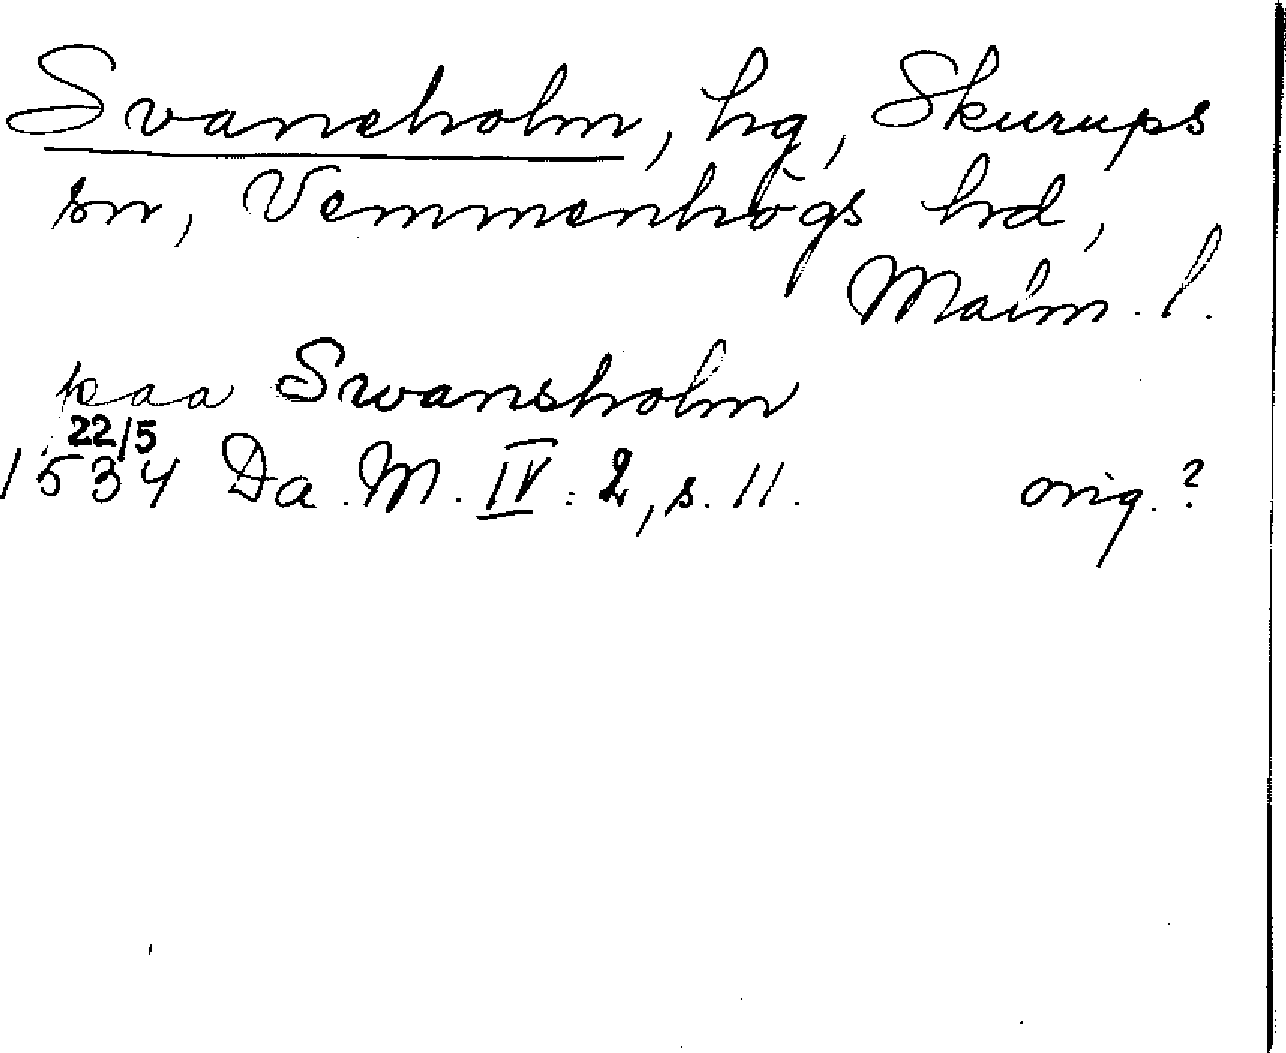 Svaneholm, hg, Skurups
sn, Vemmenhögs hd,
Malm. l.
paa Swansholm
22/5
1534 Da. M. IV: 2, s. 11. orig.?